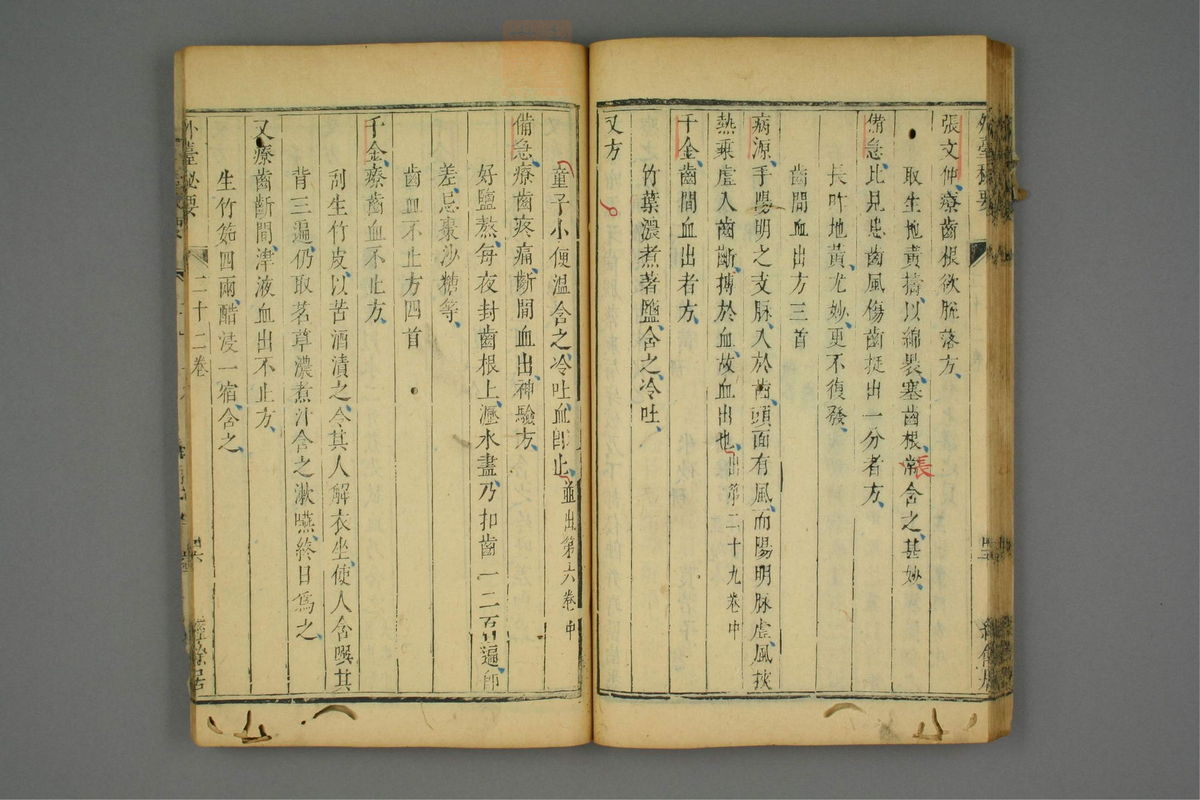 張文仲療齒根欲脫落方
取生地黃擣以綿裹塞齒根常含之甚妙
張
備急比見患齒風傷齒挺出一分者方
長吖地黃尤妙更不復發
齒間血出方三首
病源手陽明之支脉入於齒頭面有風而陽明脉虛風挾
熱乘虛入齒齗搏於血故血出也出第二十九卷中
千金齒間血出者方
竹葉濃煮著鹽含之冷吐
又方
童子小便溫含之冷吐血即止並出第六卷中
備急療齒疼痛齗間血出神驗方
好鹽熬每夜封齒根上瀝水盡乃扣齒一二百遍即
差忌棗沙糖等
齒血不止方四首
千金療齒血不止方
刮生竹皮以苦酒漬之令其人解衣坐使人含噀其
背三遍仍取茗草濃煮汁含之漱嚥終日爲之
又療齒齗間津液血出不止方
生竹筎四兩醋浸一宿含之
外臺秘要
二十二卷
經餘居